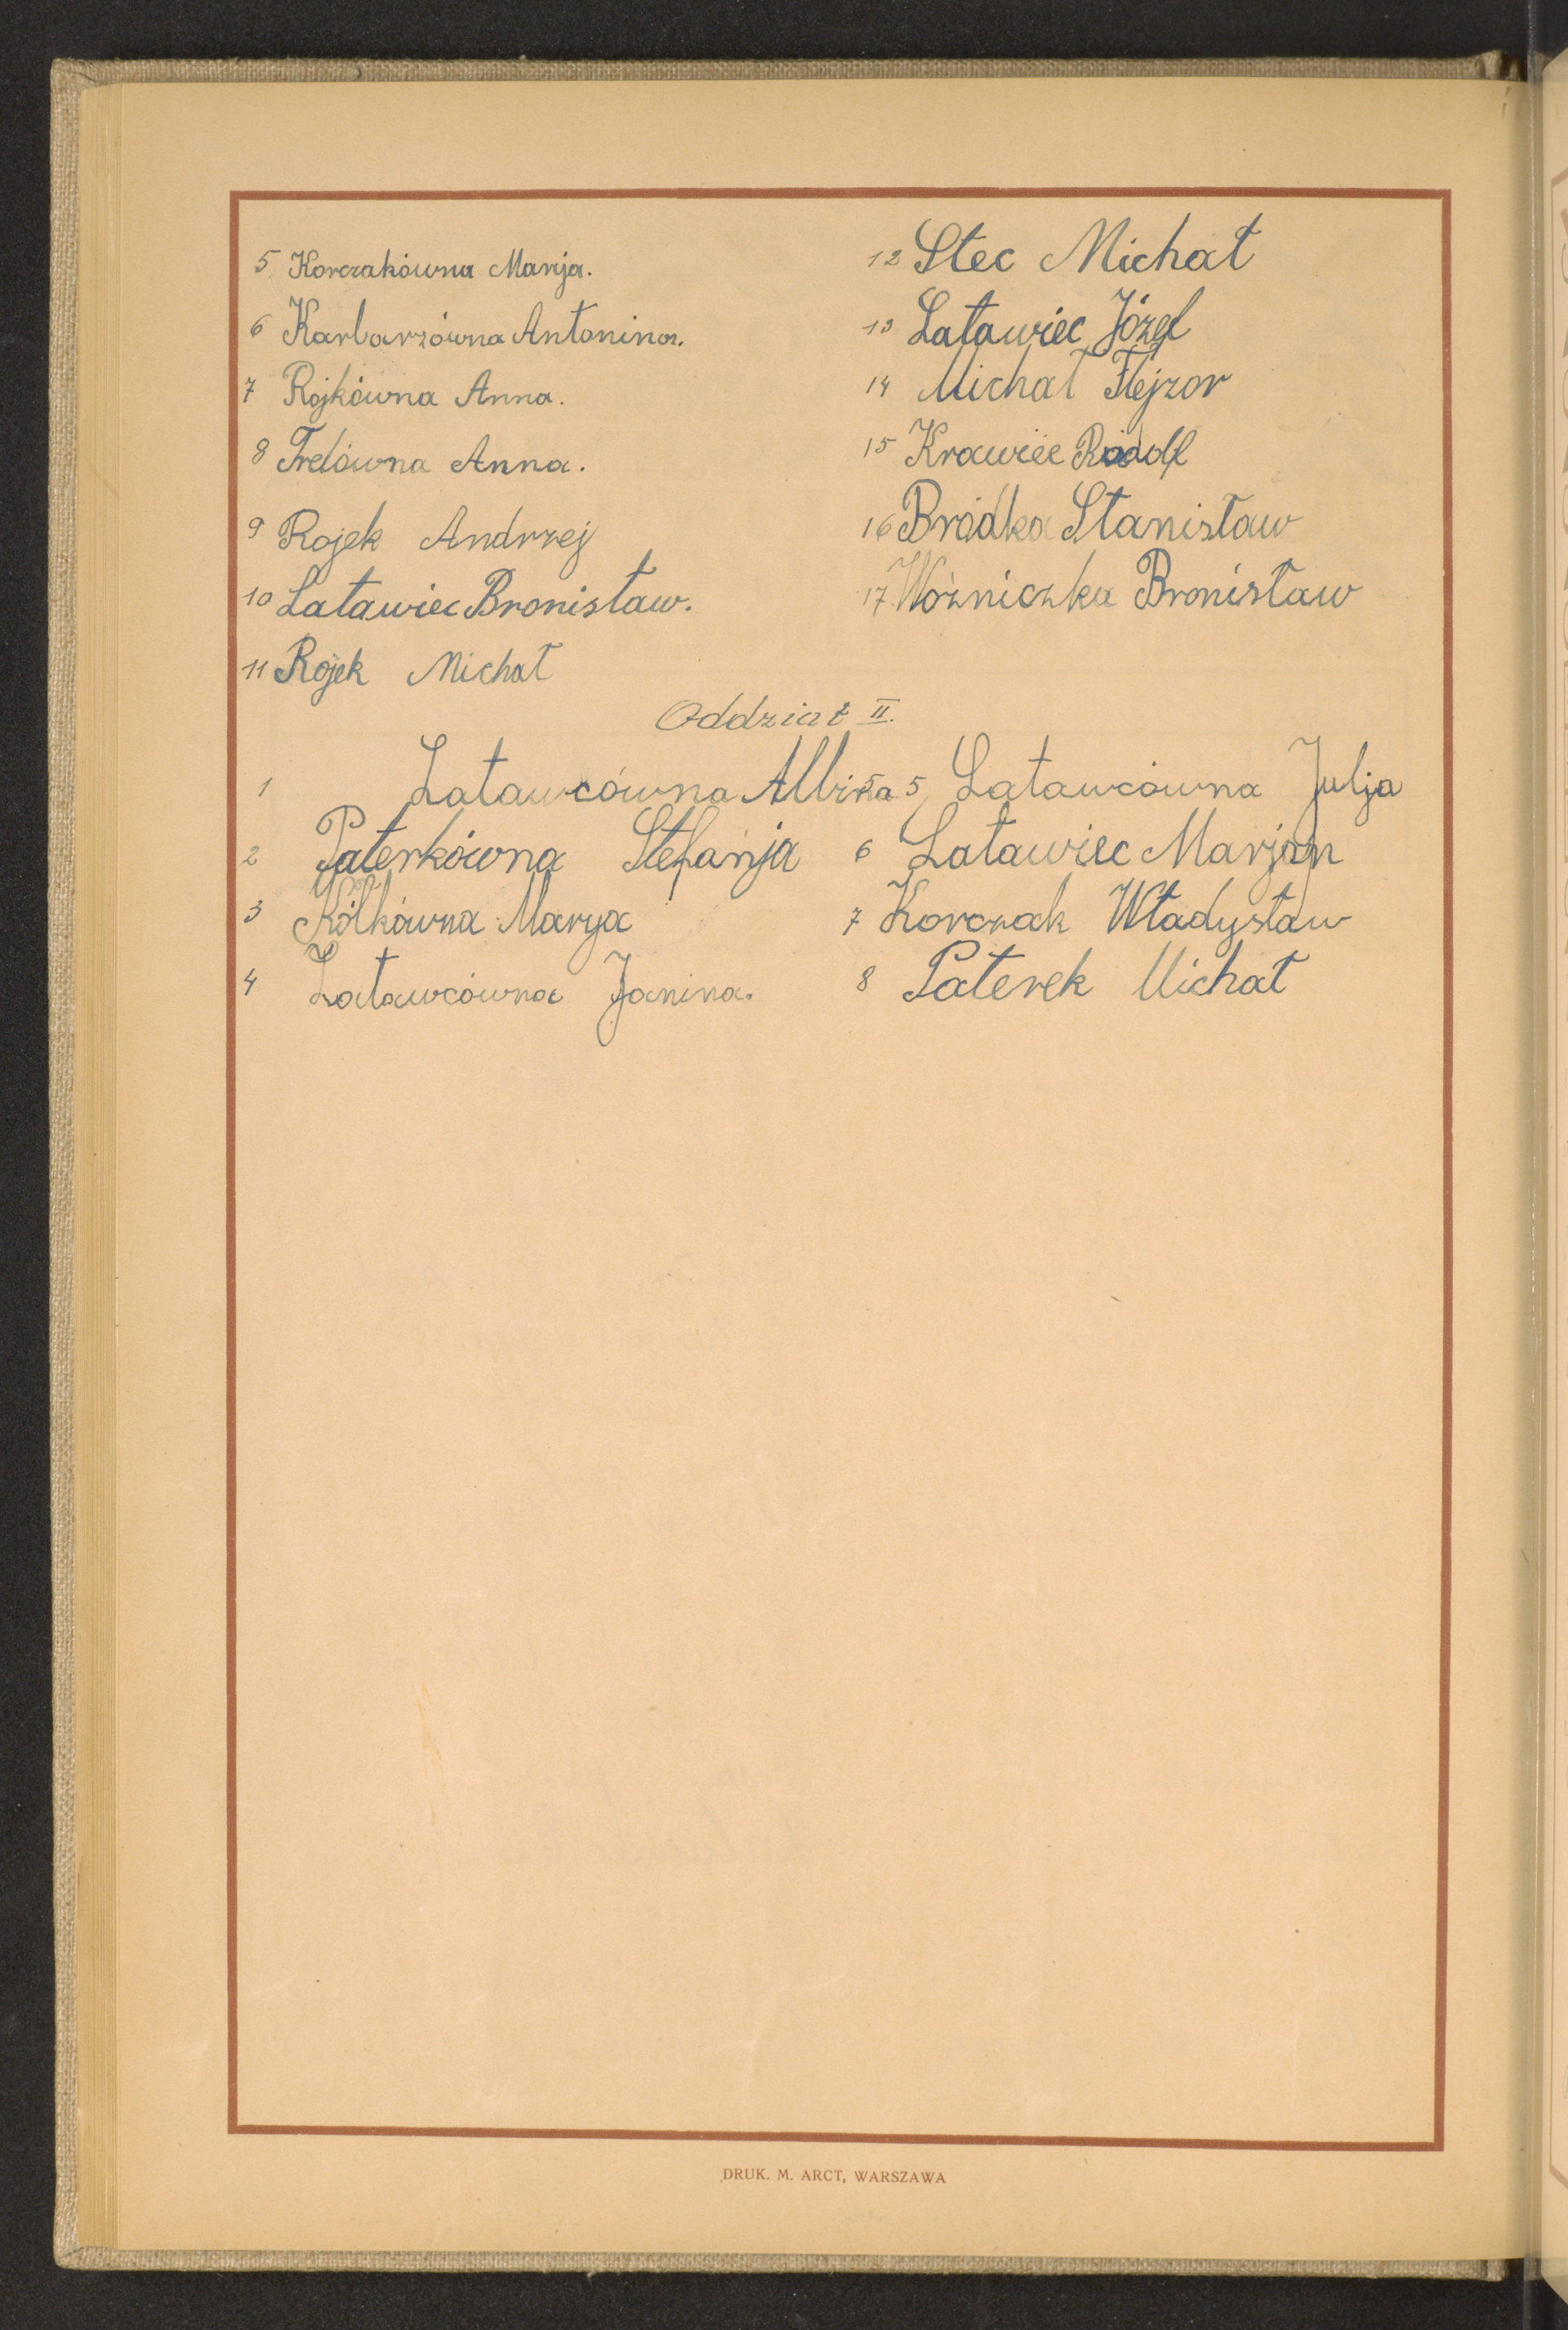 5 Korczakówna Marja.
6 Karbarzówna Antonina.
7 Rojkówna Anna.
8 Trelówna Anna.
9 Rojek Andrzej
10 Latawiec Bronisław.
11 Rojek Michał
12 Stec Michał
13 Latawiec Józef
14 Michał Flejzor
15 Krawiec
16 Bródka Stanisław
17. Woźniczka Bronisław
Oddział II.
1 Latawcówna Albina
2 Paterkówna Stefanja
3 Kólkówna Marya
4 Latawcówna Janina.
5 Latawcówna Julja
6 Latawiec Marjan
7 Korczak Władysław
8 Paterek Michał
DRUK. M. ARCT, WARSZAWA